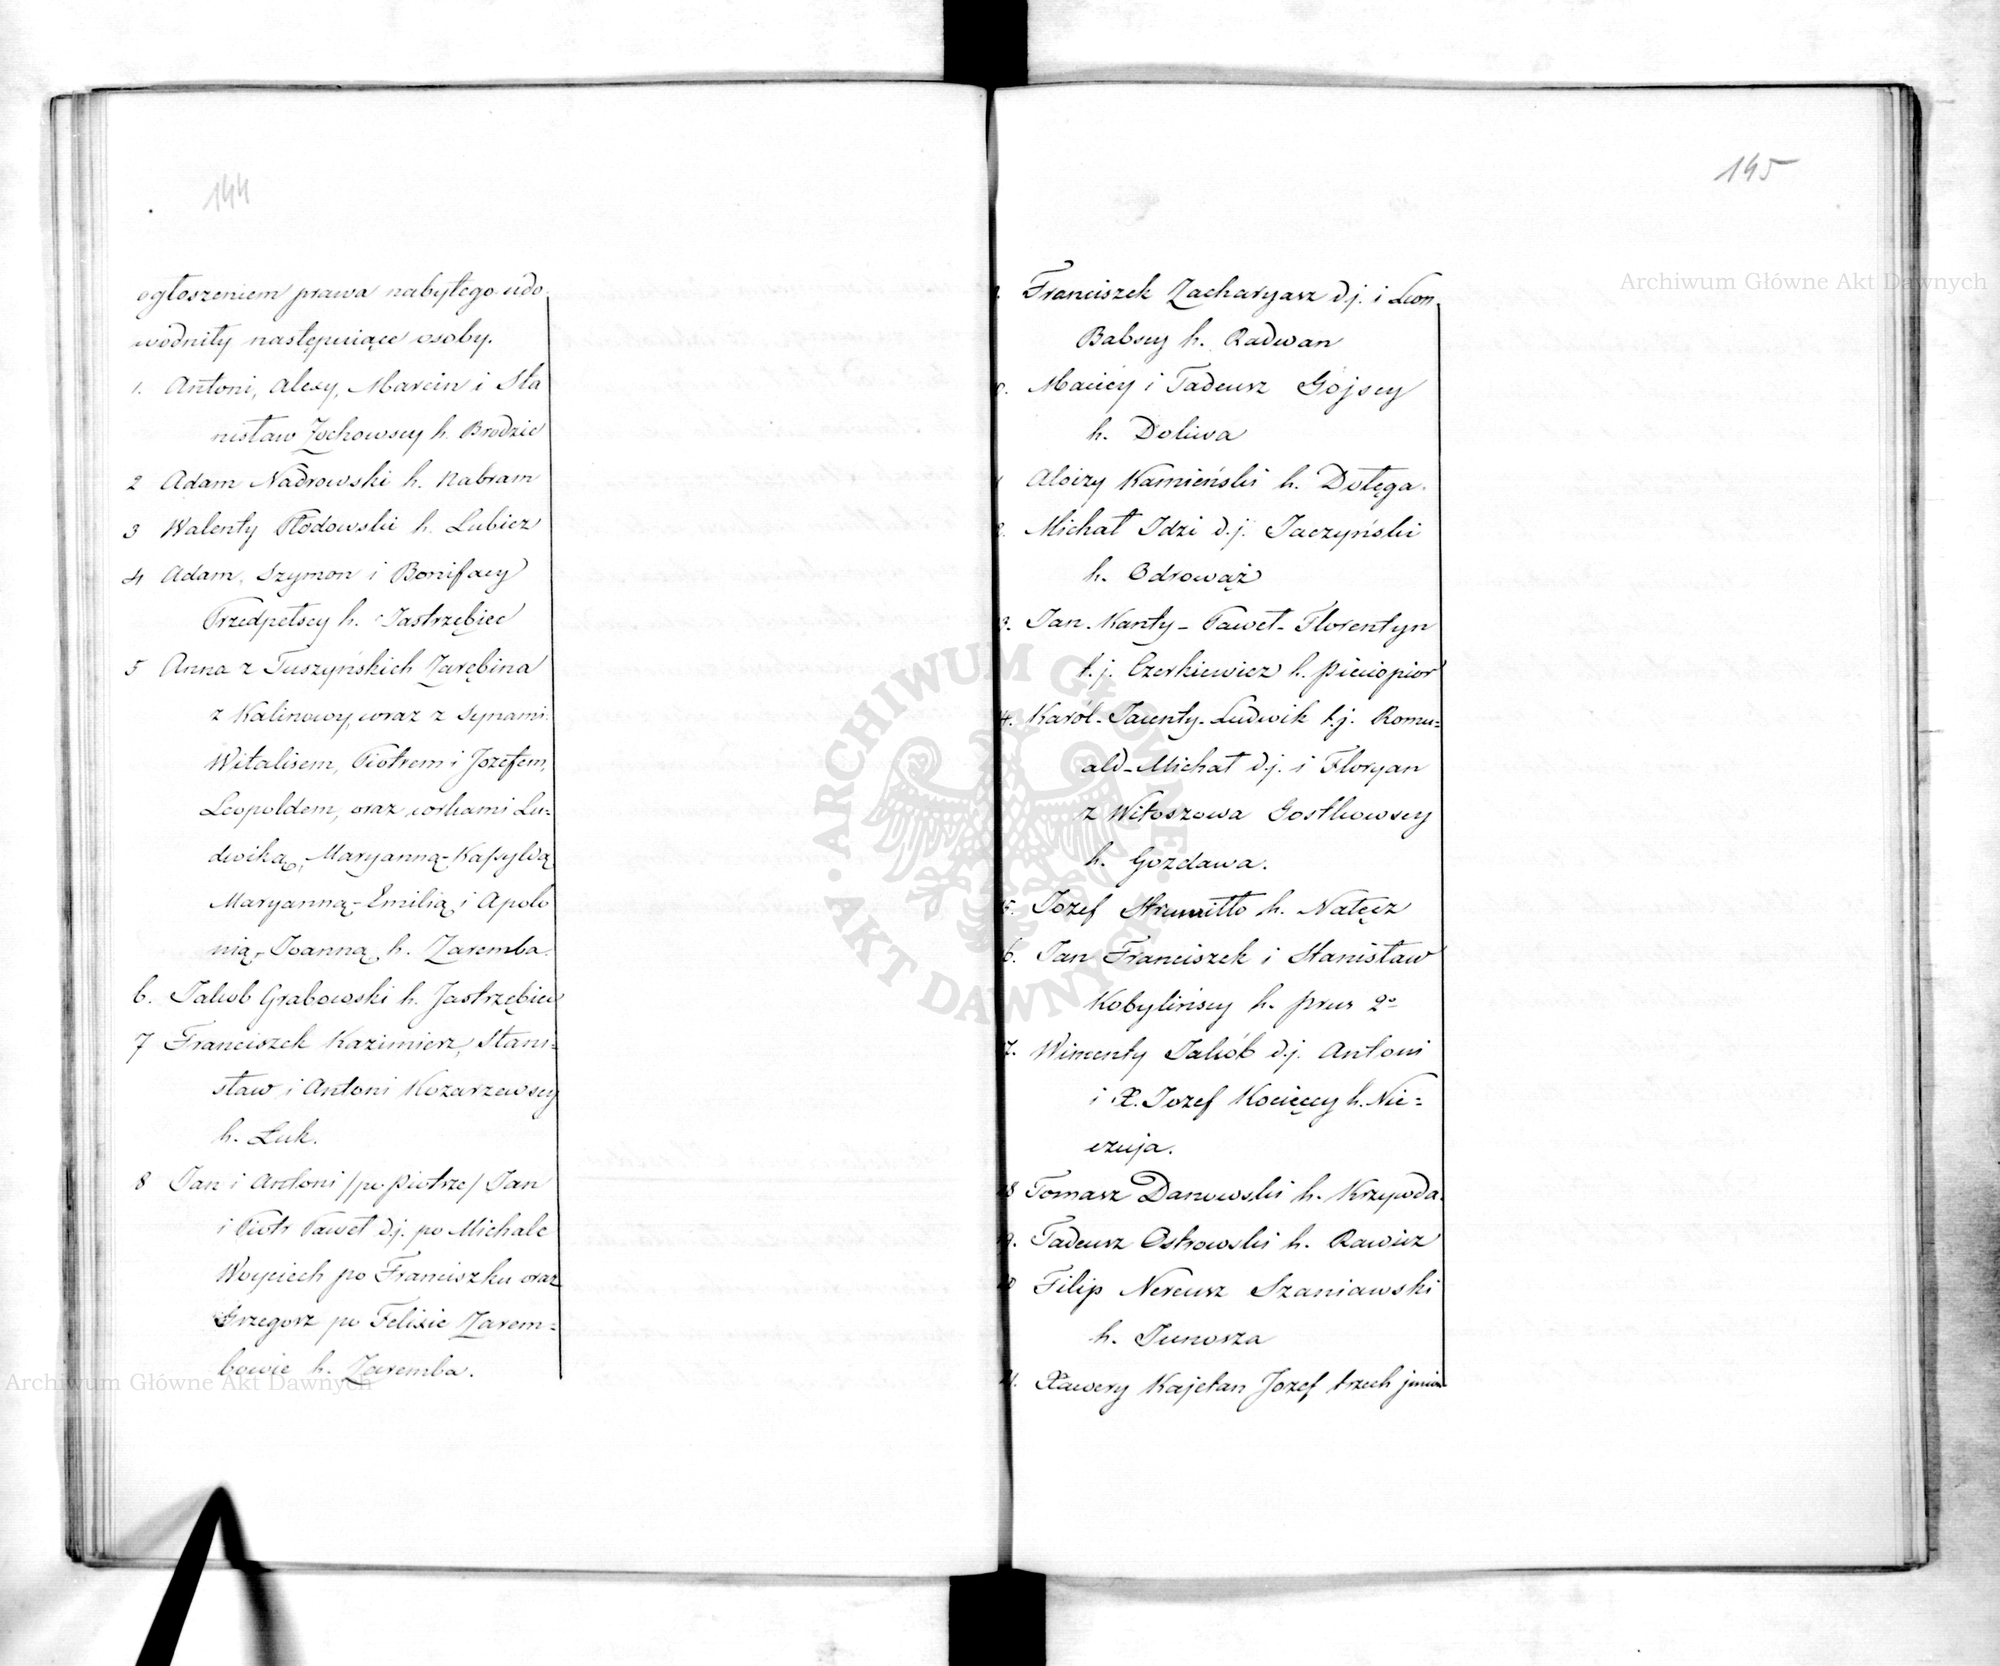 144
ogłoszeniem prawa nabytego udo
wodniły następujące osoby.
1. Antoni, Alexy, Marcin i Sta
nisław Żochowscy h. Brodzic
2 Adam Nadrowski h. Nabram
3 Walenty Płodowski h. Lubicz
4 Adam, Szymon i Bonifacy
Przedpełscy h. Jastrzębiec
5 Anna z Tuszyńskich Zarębina
z Kalinowy, wraz z synami
Witalisem, Piotrem i Jozefem,
Leopoldem, oraz corkami Lu-
dwiką, Maryanną-Kassyldą
Maryanną-Emilią i Apolo
nią, Joanną h. Zaremba.
6. Jakob Grabowski h. Jastrzębiec
7 Franciszek Kazimierz, Stani-
sław i Antoni Kozarzewscy
h. Łuk.
8 Jan i Antoni /po Piotrze/ Jan
i Piotr Paweł d.j. po Michale
Woyciech po Franciszku oraz
Grzegorz po Felixie Zarem-
bowie h. Zaremba.
145
Franciszek Zacharyasz d.j. i Leon
Babscy h. Radwan
Maciey i Tadeusz Gójscy
h. Doliwa
Aloizy Kamieński h. Dołęga.
Michał Idzi d.j. Jaczyński
h. Odrowąż
Jan-Kanty-Paweł-Florentyn
t.j. Czerkiewicz h. Pięciopior
4. Karol-Jacenty-Ludwik t.j. Romu-
ald-Michał d.j. i Floryan
z Witoszowa Gostkowscy
h. Gozdawa.
5. Jozef Strumiłło h. Nałęcz
6. Jan Franciszek i Stanisław
Kobylińscy h. Prus 2o
7. Wincenty Jakób d.j. Antoni
i X. Jozef Kocięccy h. Nie-
czuja.
18 Tomasz Danowski h. Krzywda.
19. Tadeusz Ostrowski h. Rawicz
Filip Nereusz Szaniawski
h. Junosza
Xawery Kajetan Jozef trzech imion
Archiwum Główne Akt Dawnych
Archiwum Główne Akt Dawnych
ARCHIWUM GŁÓWNE AKT DAWNYCH